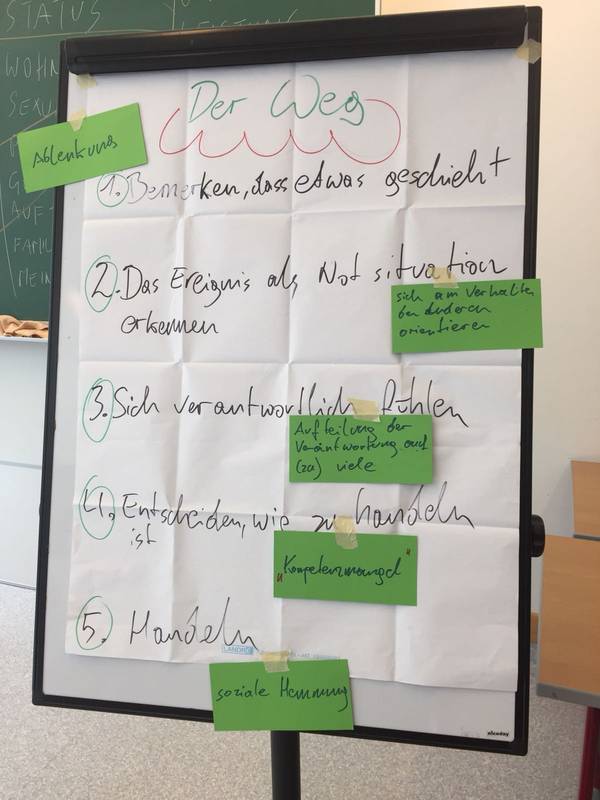 STATUS
WOHN
SEXU
AUF-
FAMILI
MEIN
Der Weg
Ablenkung
1. Bemerken, dass etwas geschieht
2. Das Ereignis als Notsituation
erkennen
sich am Verhalten
der Anderen
orientieren
3. Sich verantwortlich fühlen
Aufteilung der
Verantwortung auf
(zu) viele
4. Entscheiden, wie zu handeln
ist
„Kompetenzmangel"
5. Handeln
LANDRÉ
soziale Hemmung
niceday